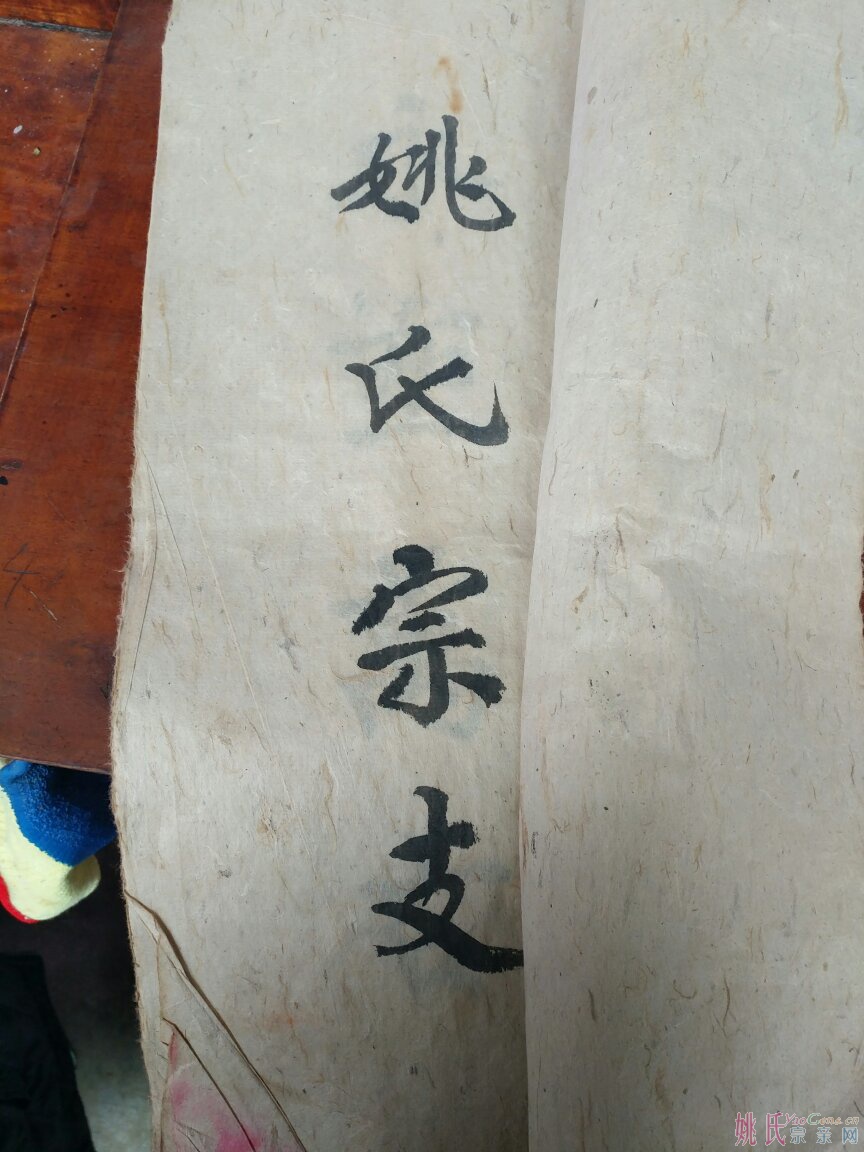 姚氏宗支
姚氏宗亲网
YaoCens.cn